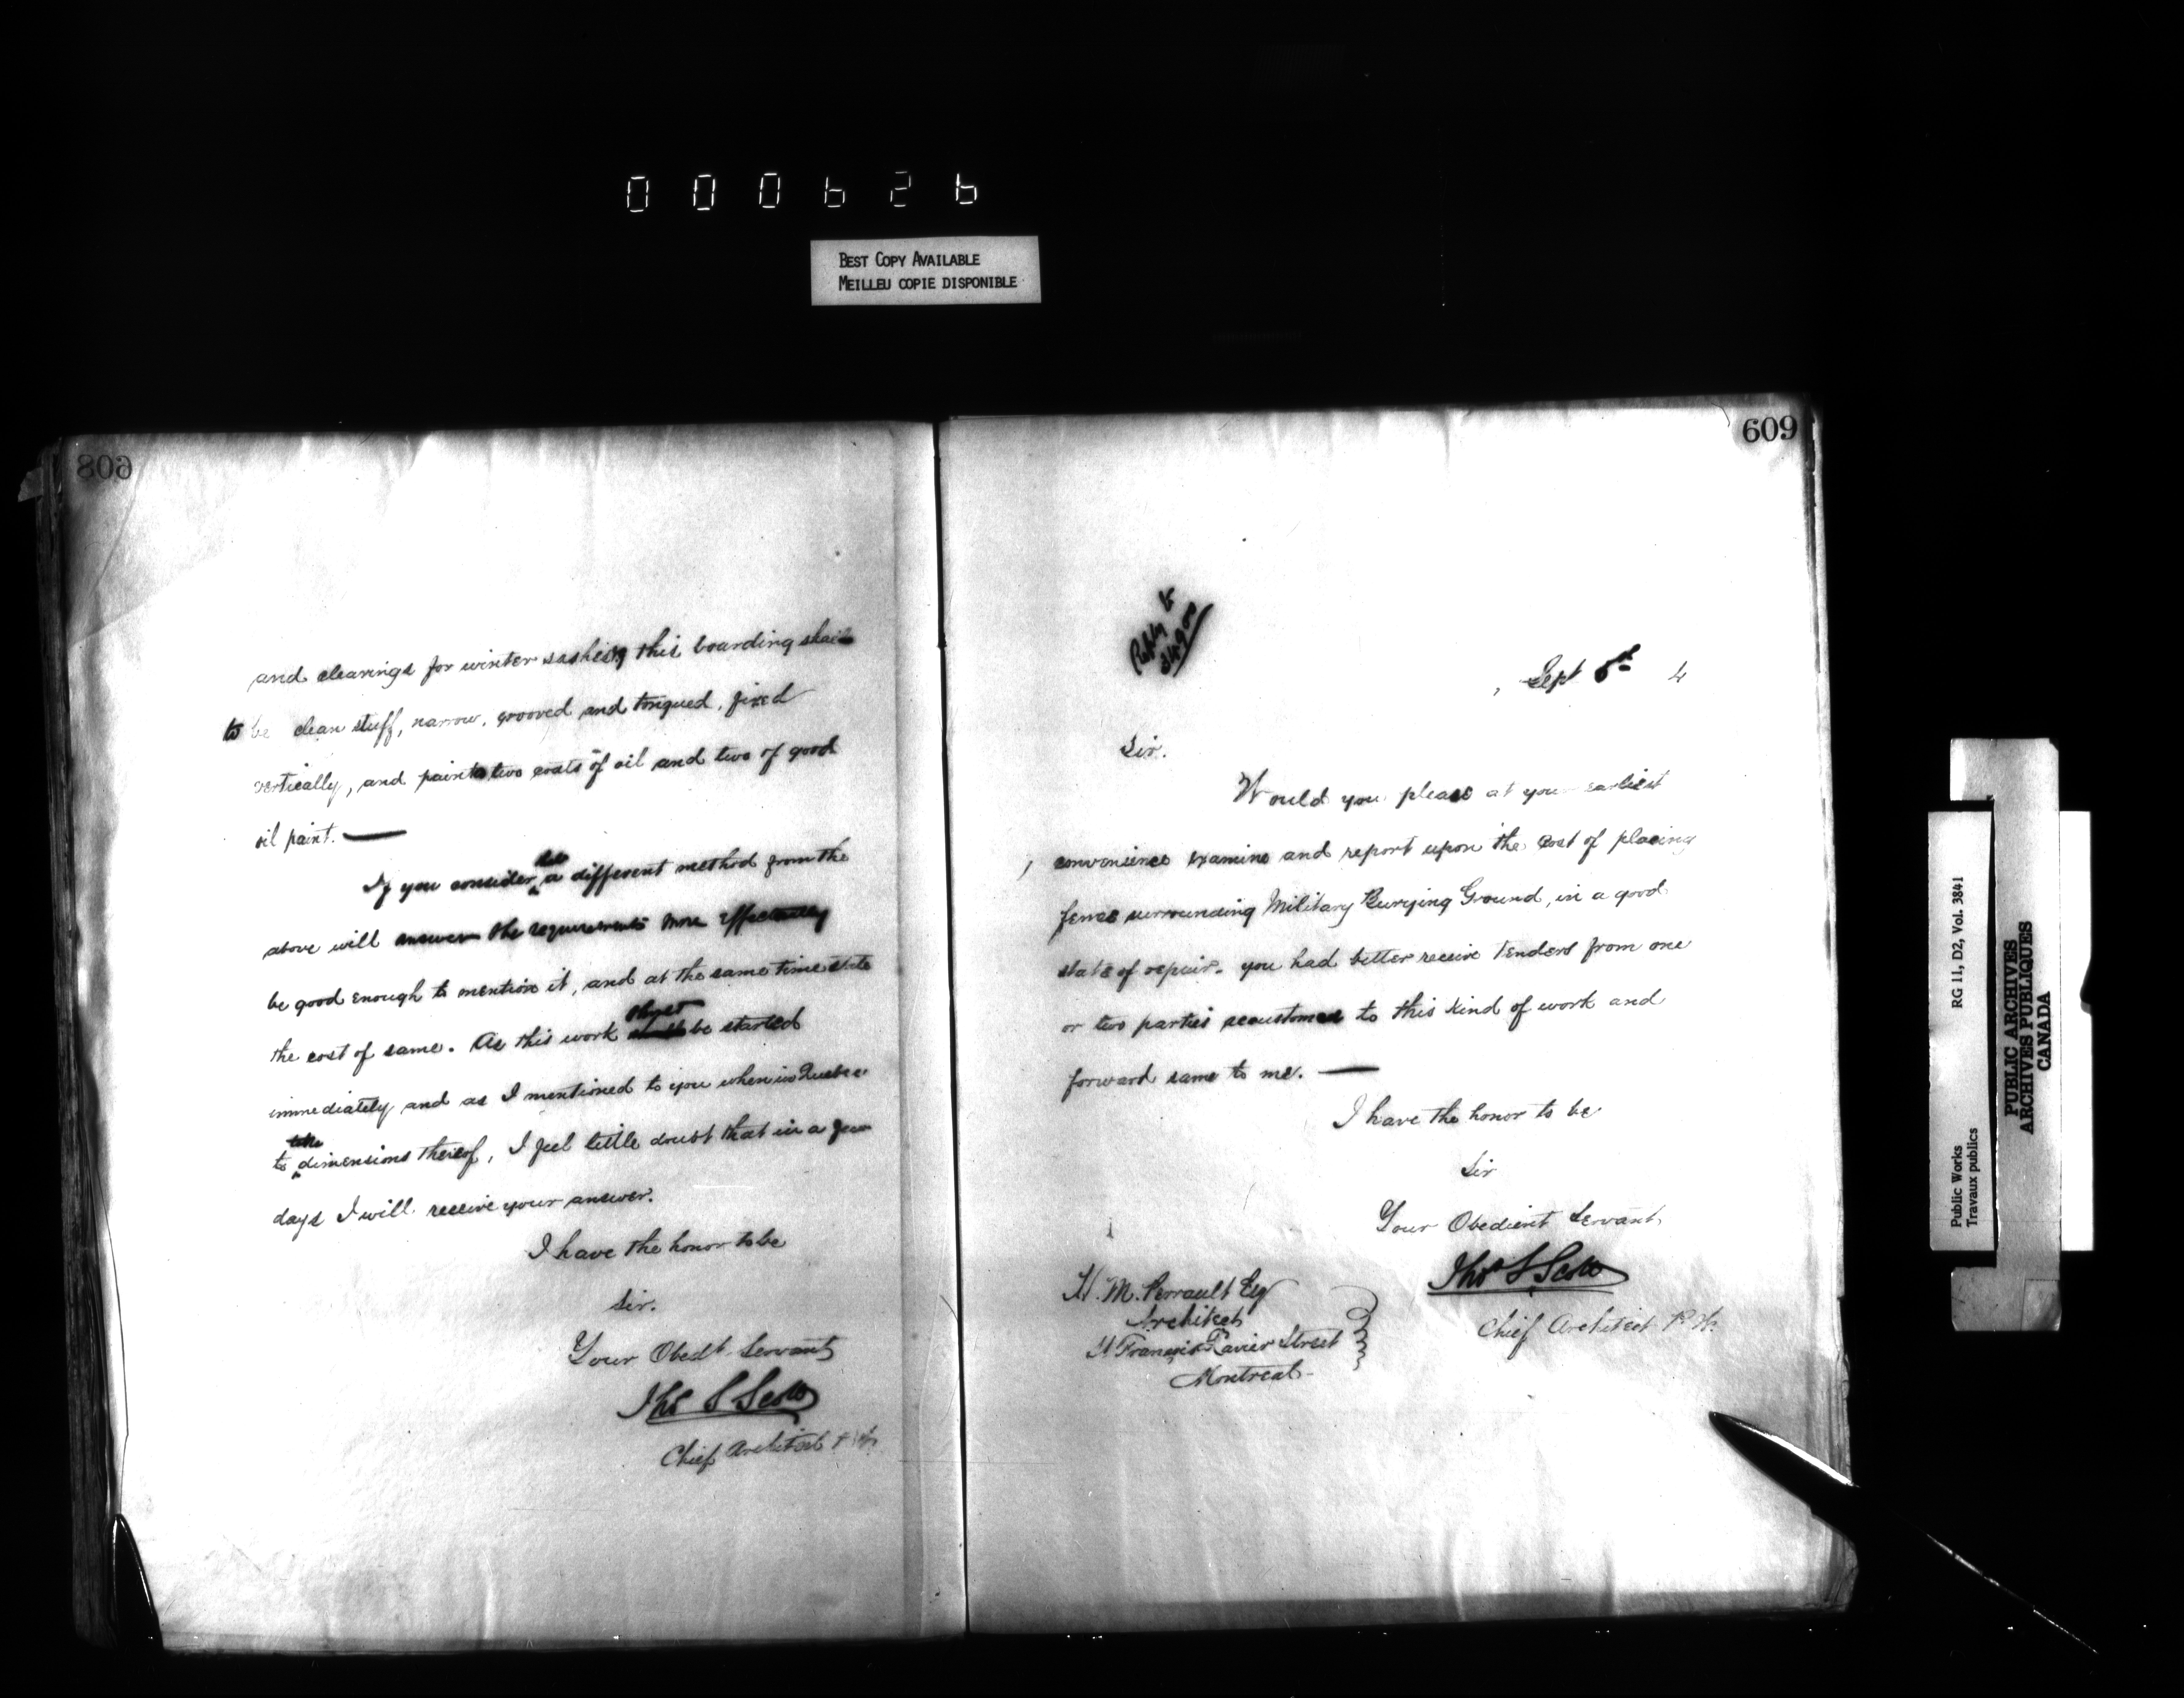 000626
BEST COPY AVAILABLE
MEILLEU COPIE DISPONIBLE
608
and clearings for winter sashing this boarding shall
to be clean stuff, narrow, grooved and tongued, fixed
vertically, and paint two coats of oil and two of good
oil paint. —
If you consider a different method from the
above will answer the requirements more effectually
be good enough to mention it, and at the same time state
the cost of same. As this work ought be started
immediately and as I mentioned to you when in Quebec
to take dimensions thereof, I feel little doubt that in a few
days I will receive your answer.
I have the honor to be
Sir.
Your Obedt Servant
Thos S Scott
Chief Architect P.W.
609
Reply to
Sept 4
Sir.
Would you please at your earliest
convenience examine and report upon the cost of placing
fence surrounding Military Burying Ground, in a good
state of repair. you had better receive tenders from one
or two parties accustomed to this kind of work and
forward same to me. —
I have the honor to be
Sir
Your Obedient Servant
Thos S Scott
Chief Architect P.W.
H. M. Perrault Esq
Architect
St Francois Xavier Street
Montreal
Public Works
Travaux publics
RG 11, D2, Vol. 3841
PUBLIC ARCHIVES
ARCHIVES PUBLIQUES
CANADA